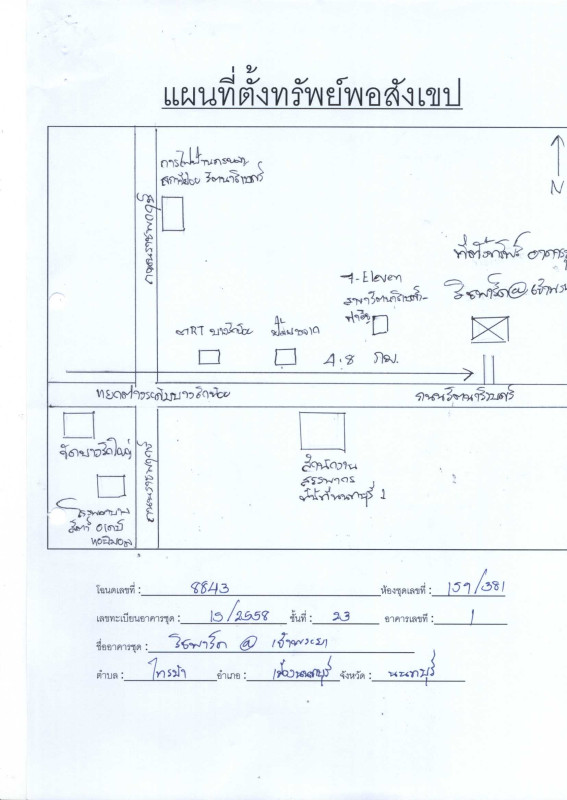 แผนที่ตั้งทรัพย์พอสังเขป
การไฟฟ้านครหลวง
สาขาย่อย รัตนาธิเบศร์
ถนนราชพฤกษ์
N
ที่ตั้งทรัพย์ อาคารชุด
ริชพาร์ค@เจ้าพระยา
7-Eleven
สาขารัตนาธิเบศร์-
ท่าอิฐ
MRT บางรักน้อย
4.8 กม.
ถนนรัตนาธิเบศร์
วัดบางรักใหญ่
ถนนราชพฤกษ์
สำนักงาน
สรรพากร
พื้นที่นนทบุรี 2
โรงพยาบาล
โฉนดเลขที่ : 8843 ห้องชุดเลขที่ : 159/381
เลขทะเบียนอาคารชุด : 15/2558 ชั้นที่ : 23 อาคารเลขที่ : 1
ชื่ออาคารชุด : ริชพาร์ค @ เจ้าพระยา
ตำบล : ไทรม้า อำเภอ : เมืองนนทบุรี จังหวัด : นนทบุรี